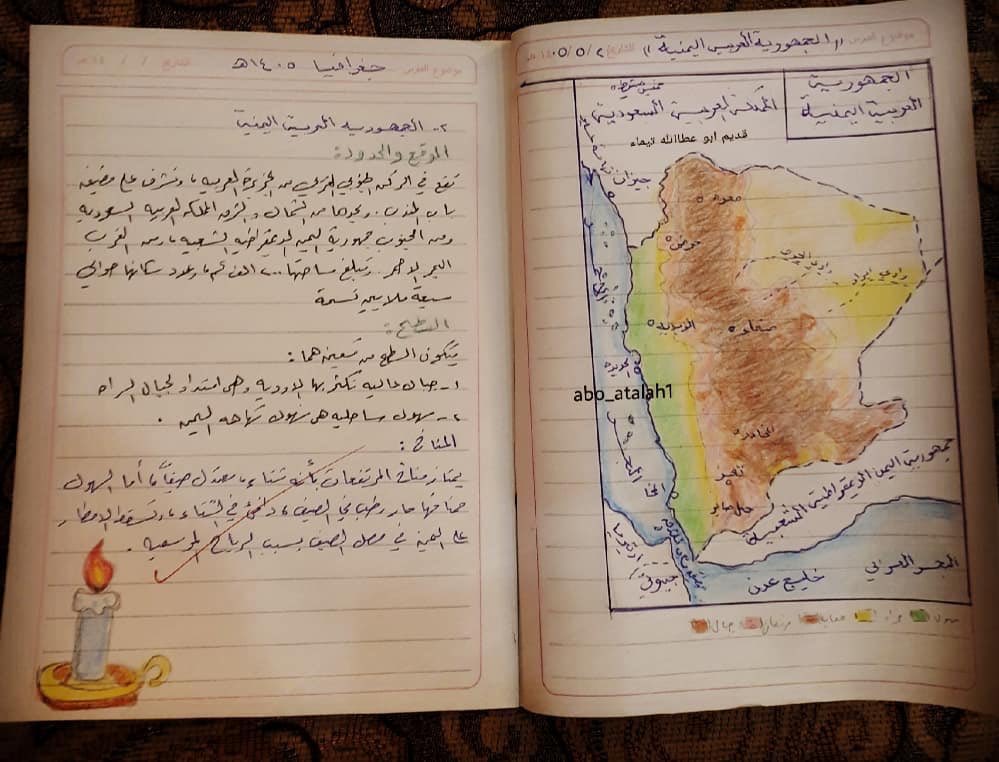 موضوع الدرس جغرافيا ١٤٠٥هـ التاريخ / / ١٤ هـ
٢- الجمهورية العربية اليمنية
الموقع والحدود:
تقع في الركن الجنوبي الغربي من الجزيرة العربية، وتشرف على مضيق
باب المندب. ويحدها من الشمال والشرق المملكة العربية السعودية
ومن الجنوب جمهورية اليمن الديمقراطية الشعبية، ومن الغرب
البحر الأحمر. وتبلغ مساحتها ٢٠٠ ألف كم، وعدد سكانها حوالي
سبعة ملايين نسمة
السطح:
يتكون السطح من قسمين هما:
١- جبال عالية تكثر بها الأودية وهي امتداد لجبال السراه
٢- سهول ساحلية هي سهول تهامه اليمن.
المناخ:
يمتاز مناخ المرتفعات بأنه شتاء، معتدل صيفاً، أما السهول
مناخها حار رطب في الصيف، دافئ في الشتاء، وتسقط الأمطار
على اليمن في فصل الصيف بسبب الرياح الموسمية.
موضوع الدرس «الجمهورية العربية اليمنية» التاريخ ٢/٥/١٤٠٥هـ
الجمهورية
العربية اليمنية
خميس مشيط
المملكة العربية السعودية
قديم ابو عطاالله تيماء
جيزان
صعدة
حرض
وادي الجوف
صنعاء
الحديدة
abo_atalah1
تعز
جبال صابر
المخا
جمهورية اليمن الديمقراطية الشعبية
جيبوتي
خليج عدن
البحر العربي
سهول
هضاب
مرتفعات
جبال